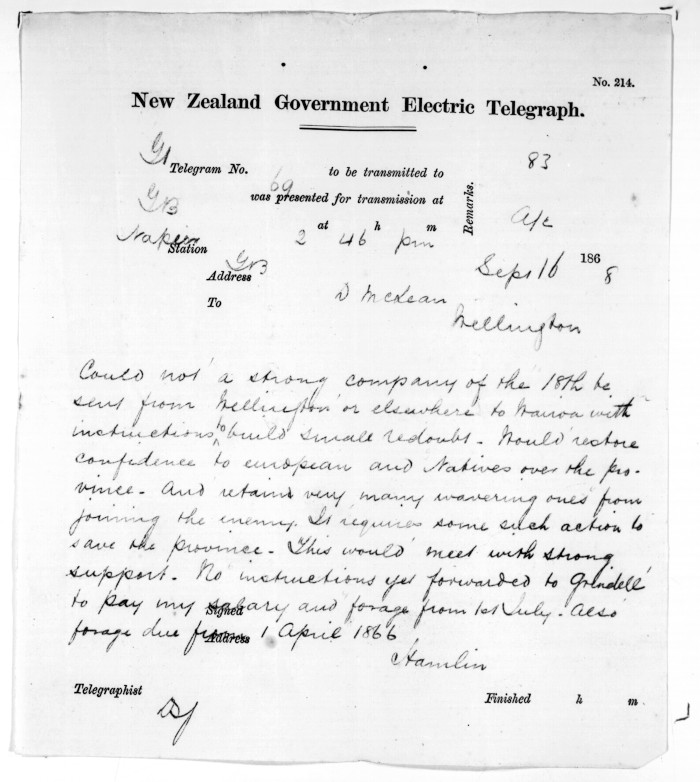 No. 214.
New Zealand Government Electric Telegraph.
Telegram No. 69 to be transmitted to
83
GB was presented for transmission at
Remarks.
Napier Station 2 at 46 h pm m
A/c
GB Address
Sept 16 1868
To D McLean
Wellington
Could not a strong company of the 18th be
sent from Wellington or elsewhere to Wairoa with
instructions to build small redoubt - Would restore
confidence to european and Natives over the pro-
vince - And retain very many wavering ones from
joining the enemy. It requires some such action to
save the province - This would meet with strong
support - No instructions yet forwarded to Grindell
to pay my salary and forage from 1st July. Also
Signed
forage due from 1 April 1866
Address
Hamlin
Telegraphist
Finished h m